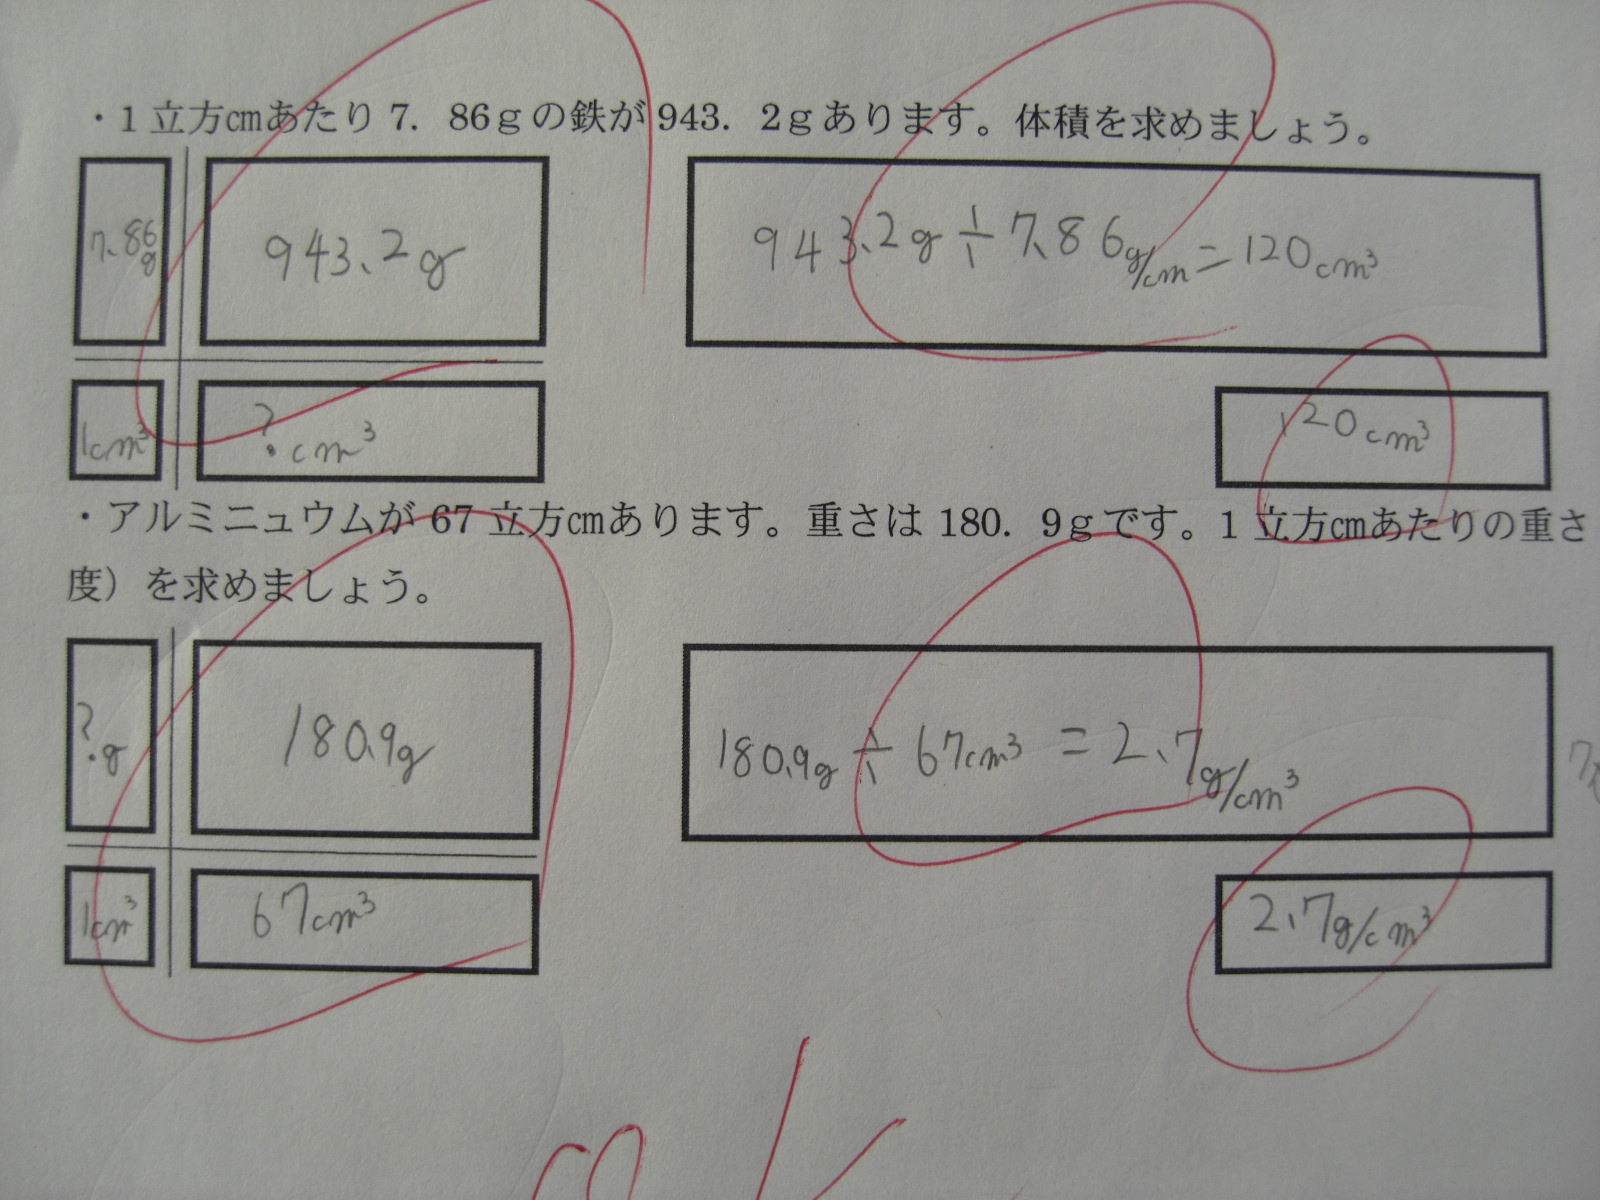 ・1立方㎝あたり7．86gの鉄が943．2gあります。体積を求めましょう。
7.86g 943.2g 943.2g÷7.86g/cm=120cm³
1cm³ ?cm³ 120cm³
・アルミニュウムが67立方㎝あります。重さは180．9gです。1立方㎝あたりの重さ
度）を求めましょう。
?g 180.9g 180.9g÷67cm³=2.7g/cm³
1cm³ 67cm³ 2.7g/cm³